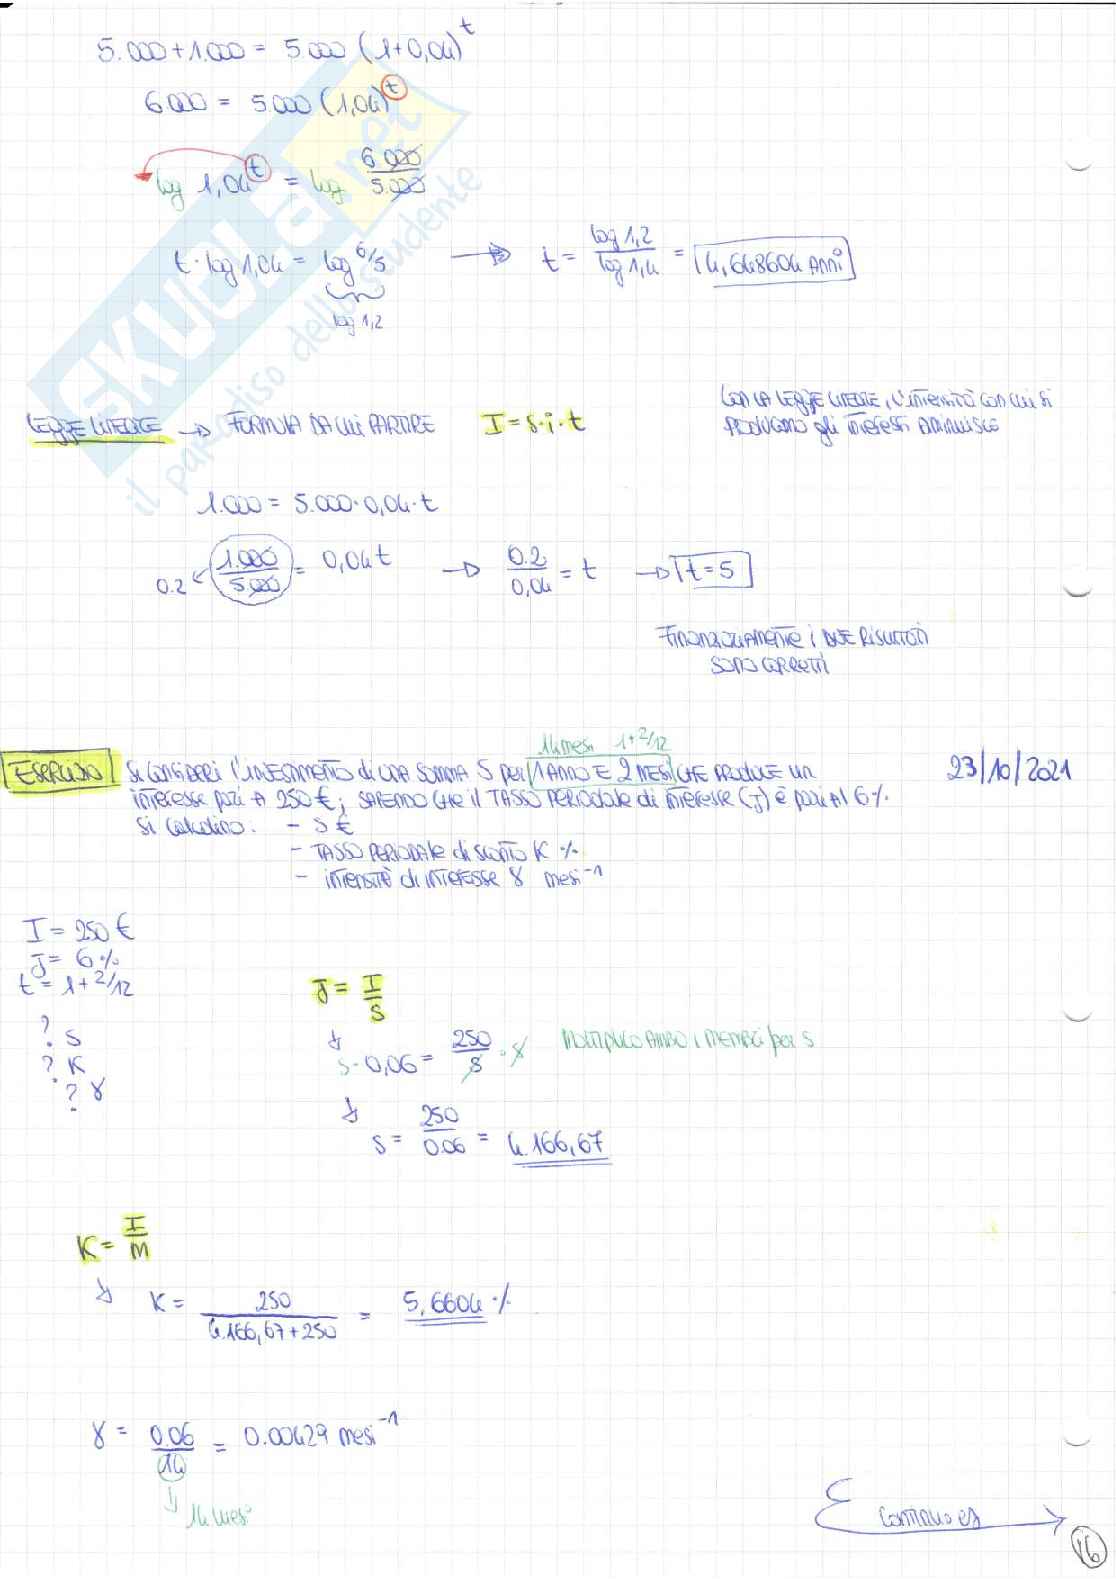 5.000+1.000 = 5.000 (1+0,04)^t
6.000 = 5.000 (1,04)^t
log 1,04^t = log 6.000/5.000
t·log 1,04 = log 6/5 → t = log 1,2 / log 1,4 = 4,648604 ANNI
log 1,2
LEGGE LINEARE → FORMULA DA CUI PARTIRE I = s·i·t
CON LA LEGGE LINEARE, l'intensità con cui si
PRODUCONO gli interessi DIMINUISCE
1.000 = 5.000·0,04·t
0.2 ← 1.000/5.000 = 0,04t → 0.2/0,04 = t → t = 5
FINANZIARIAMENTE i DUE RISULTATI
SONO CORRETTI
14 mesi 1+2/12
ESERCIZIO Si CONSIDERI l'INVESTIMENTO di UNA SOMMA S per 1 ANNO E 2 MESI CHE PRODUCE UN 23/10/2021
interesse pari A 250 €; SAPENDO CHE il TASSO PERIODALE di interesse (J) è pari Al 6%.
Si calcolino: - S €
- TASSO PERIODALE di SCONTO K %
- intensità di interesse γ mesi^-1
I = 250 €
J = 6%
t = 1+2/12
? S
? K
? γ
J = I/S
S·0,06 = 250/S · S MOLTIPLICO AMBO i MEMBRI per S
S = 250/0.06 = 4.166,67
K = I/M
K = 250 / 4.166,67+250 = 5,6604 %
γ = 0.06/14 = 0.00429 mesi^-1
14 mesi
CONTINUO ES
16
SKUOLA.net
il paradiso dello studente